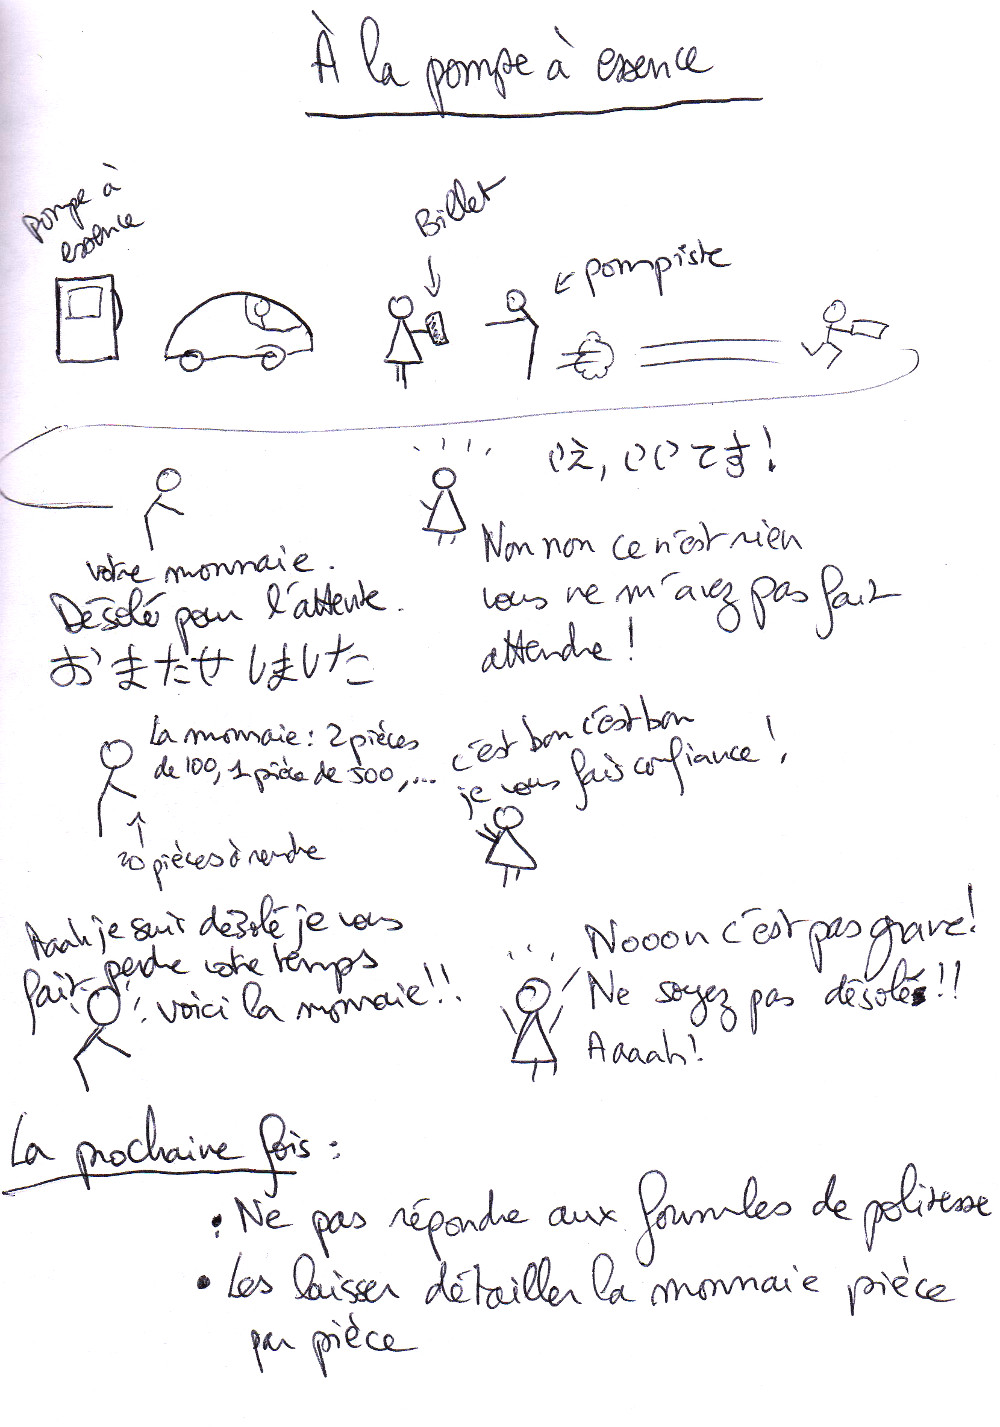 À la pompe à essence
Pompe à
essence
Billet
pompiste
いえ, いいです!
Non non ce n'est rien
vous ne m'avez pas fait
attendre !
votre monnaie.
Désolé pour l'attente.
おまたせしました
La monnaie : 2 pièces
de 100, 1 pièce de 500, ...
c'est bon c'est bon
je vous fais confiance !
20 pièces à rendre
Aaah je suis désolé je vous
fait perdre votre temps
voici la monnaie !!
Nooon c'est pas grave !
Ne soyez pas désolé !!
Aaaah !
La prochaine fois :
• Ne pas répondre aux formules de politesse
• Les laisser détailler la monnaie pièce
par pièce